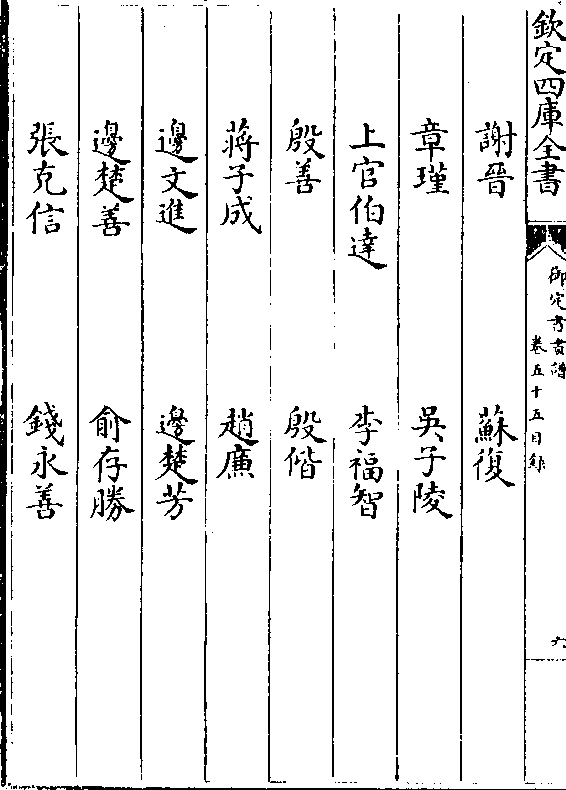 欽定四庫全書
御定書畫譜
卷五十五目録
六
謝晉
蘇復
章瑾
吳子陵
上官伯達
李福智
殷善
殷偕
蔣子成
趙廉
邊文進
邊楚芳
邊楚善
俞存勝
張克信
錢永善